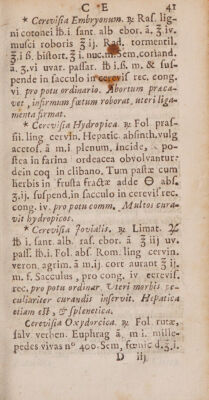 C E 41
* Cerevisia Embryonum. ℞ Ras. lig-
ni cotonei ℔.i. sant. alb ebor. ā. ʒ iv.
musci roboris ʒ ij. Rad. tormentil.
ʒ.i ß. bistort. ʒ i. nuc.m. Sem.coriand.
ā. ʒ.vi uvar. passar. ℔ i.ß. m. & sus-
pende in sacculo in cerevis rec. cong.
vi. pro potu ordinario. Abortum præca-
vet, infirmum fœtum roborat, uteri liga-
menta firmat.
* Cerevisia Hydropica. ℞ Fol pras-
sii. ling cervin. Hepatic. absinth. vulg
acetos. ā m.i plenum, incide, po-
stea in farina ordeacea obvolvantur:
dein coq in clibano, Tum pastæ cum
herbis in frusta fractæ adde abs.
ʒ.ij. suspend, in sacculo in cerevis. rec.
cong. iv. pro potu comm. Multos cura-
vit hydropicos.
* Cerevisia Jovialis. ℞ Limat. ♃
℔ i. sant. alb. ras. ebor. ā ʒ iij uv.
pass. ℔.i. Fol. abs. Rom. ling cervin.
veron. agrim. ā m.ij cort aurant ʒ ij.
m. f. Sacculus, pro cong. iv cerevis.
rec. pro potu ordinar. Uteri morbis pe-
culiariter curandis inservit. Hepatica
etiam est, & splenetica.
Cerevisia Oxydorcica. ℞ Fol rutæ,
salv verben. Euphrag ā m i. mille-
pedes vivas nº 400. Sem, fœnic d.ʒ.i.
D iij